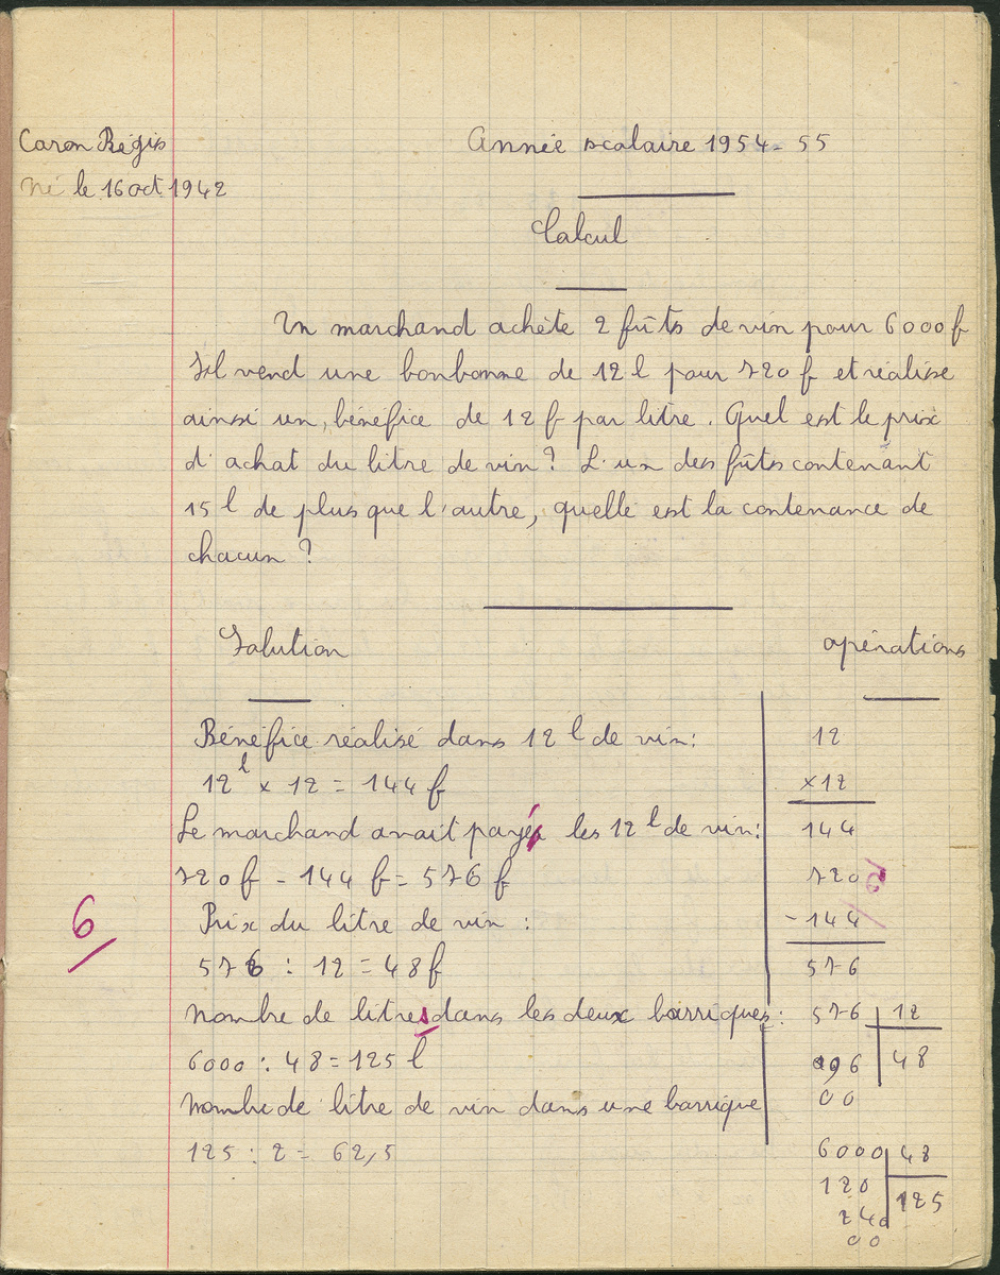 Caron Régis
Né le 16 oct 1942
Année scolaire 1954-55
Calcul
Un marchand achète 2 fûts de vin pour 6000 f
Il vend une bonbonne de 12 l pour 720 f et réalise
ainsi un bénéfice de 12 f par litre. Quel est le prix
d'achat du litre de vin? L'un des fûts contenant
15 l de plus que l'autre, quelle est la contenance de
chacun?
Solution
Bénéfice réalisé dans 12 l de vin:
12 l x 12 = 144 f
Le marchand avait payé les 12 l de vin:
720 f - 144 f = 576 f
Prix du litre de vin:
576 : 12 = 48 f
Nombre de litres dans les deux barriques:
6000 : 48 = 125 l
Nombre de litre de vin dans une barrique
125 : 2 = 62,5
6
opérations
12
x12
144
720
-144
576
576 12
096 48
00
6000 48
120 125
240
00